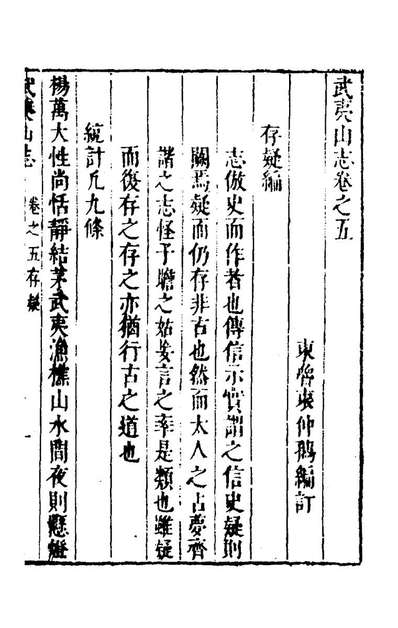 武夷山志卷之五
東魯衷仲孺編訂
存疑編
志倣史而作者也傳信示實謂之信史疑則
闕焉疑而仍存非古也然而太人之占夢齊
諧之志怪子瞻之姑妄言之率是類也雖疑
而復存之存之亦猶行古之道也
統計凡九條
楊萬大性尚恬靜結茅武夷漁樵山水間夜則懸燈
武夷山志
卷之五存疑